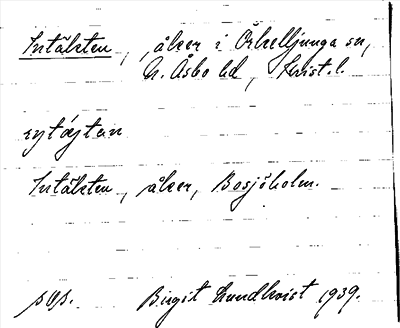 Intäkten, åker i Örkelljunga sn,
N. Åsbo hd, Krist. l.
Intäkten, åker, Bosjöholm.
Birgit Lundkvist 1939.